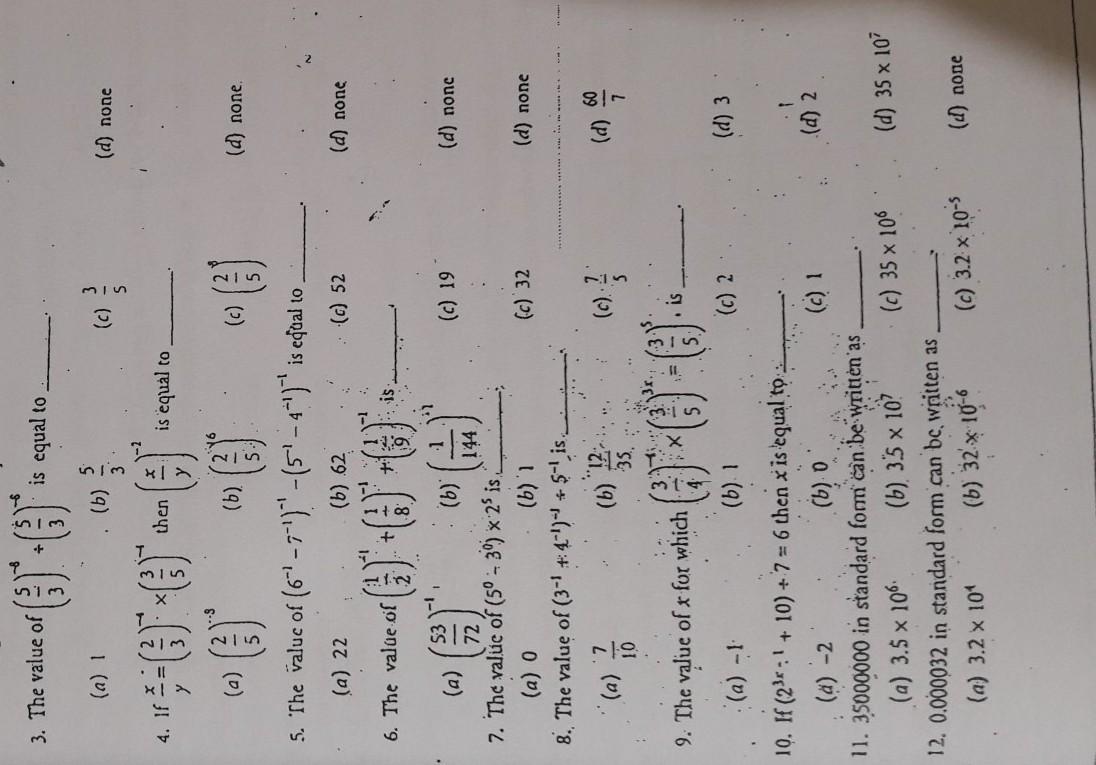 3. The value of (5/3)⁻⁸ ÷ (5/3)⁻⁸ is equal to ______.
(a) 1 (b) 5/3 (c) 3/5 (d) none
4. If x/y = (2/3)⁻⁴ × (3/5)⁻⁴ then (x/y)⁻² is equal to ______.
(a) (2/5)⁻⁸ (b) (2/5)¹⁶ (c) (2/5)⁸ (d) none
5. The value of (6⁻¹ – 7⁻¹)⁻¹ – (5⁻¹ – 4⁻¹)⁻¹ is equal to ______.
(a) 22 (b) 62 (c) 52 (d) none
6. The value of (1/2)⁻¹ + (1/8)⁻¹ + (1/9)⁻¹ is ______.
(a) (53/72)⁻¹ (b) (1/144)⁻¹ (c) 19 (d) none
7. The value of (5⁰ – 3⁰) × 2⁵ is ______.
(a) 0 (b) 1 (c) 32 (d) none
8. The value of (3⁻¹ + 4⁻¹)⁻¹ ÷ 5⁻¹ is ______.
(a) 7/10 (b) 12/35 (c) 7/5 (d) 60/7
9. The value of x for which (3/4)⁻⁴ × (3/5)³ˣ = (3/5)⁵, is ______.
(a) –1 (b) 1 (c) 2 (d) 3
10. If (2³ˣ⁻¹ + 10) ÷ 7 = 6 then x is equal to ______.
(a) –2 (b) 0 (c) 1 (d) 2
11. 35000000 in standard form can be written as ______.
(a) 3.5 × 10⁶ (b) 3.5 × 10⁷ (c) 35 × 10⁶ (d) 35 × 10⁷
12. 0.000032 in standard form can be written as ______.
(a) 3.2 × 10⁴ (b) 32 × 10⁻⁶ (c) 3.2 × 10⁻⁵ (d) none